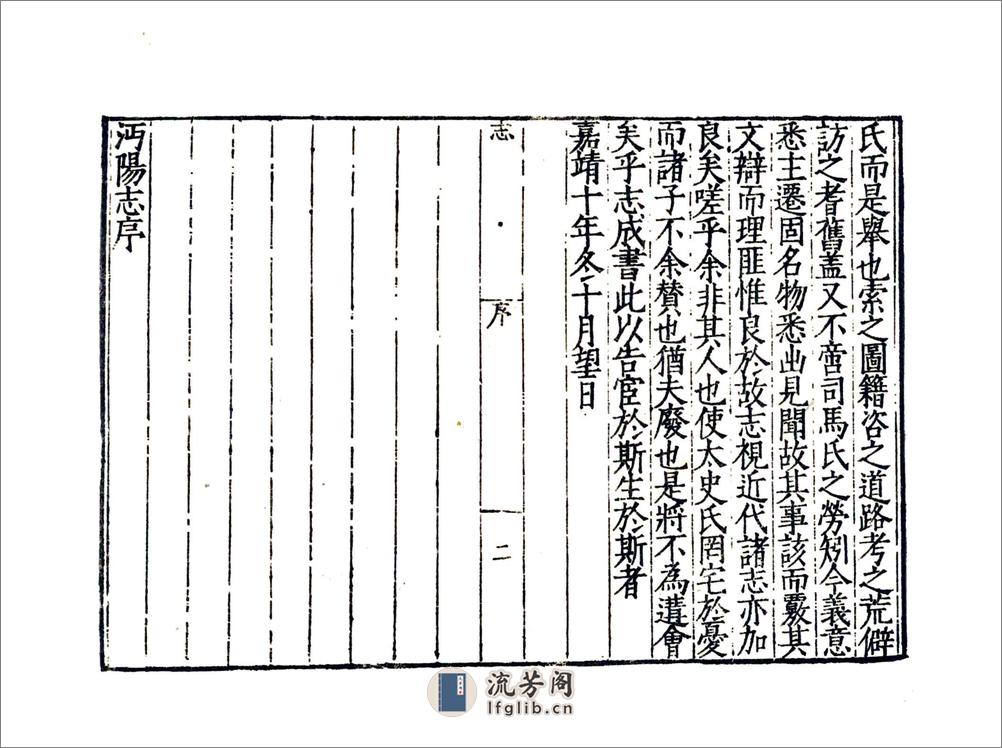 氏而是舉也索之圖籍咨之道路考之荒僻
訪之耆舊蓋又不啻司馬氏之勞矧今義意
悉主遷固名物悉出見聞故其事該而覈其
文辯而理匪惟良於故志視近代諸志亦加
良矣嗟乎余非其人也使太史氏罔宅於憂
而諸子不余賛也猶夫廢也是將不為遺會
矣乎志成書此以告宦於斯生於斯者
嘉靖十年冬十月望日
志
序
二
沔陽志序
流芳阁
lfglib.cn